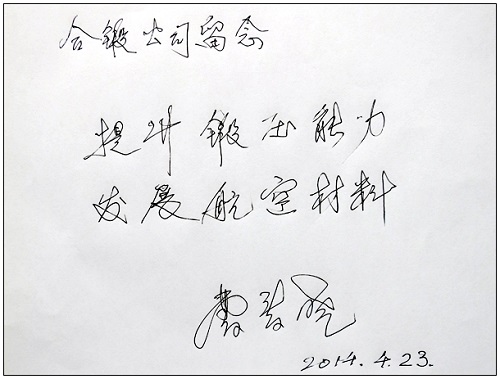 合锻公司留念
提升锻压能力
发展航空材料
2014.4.23.